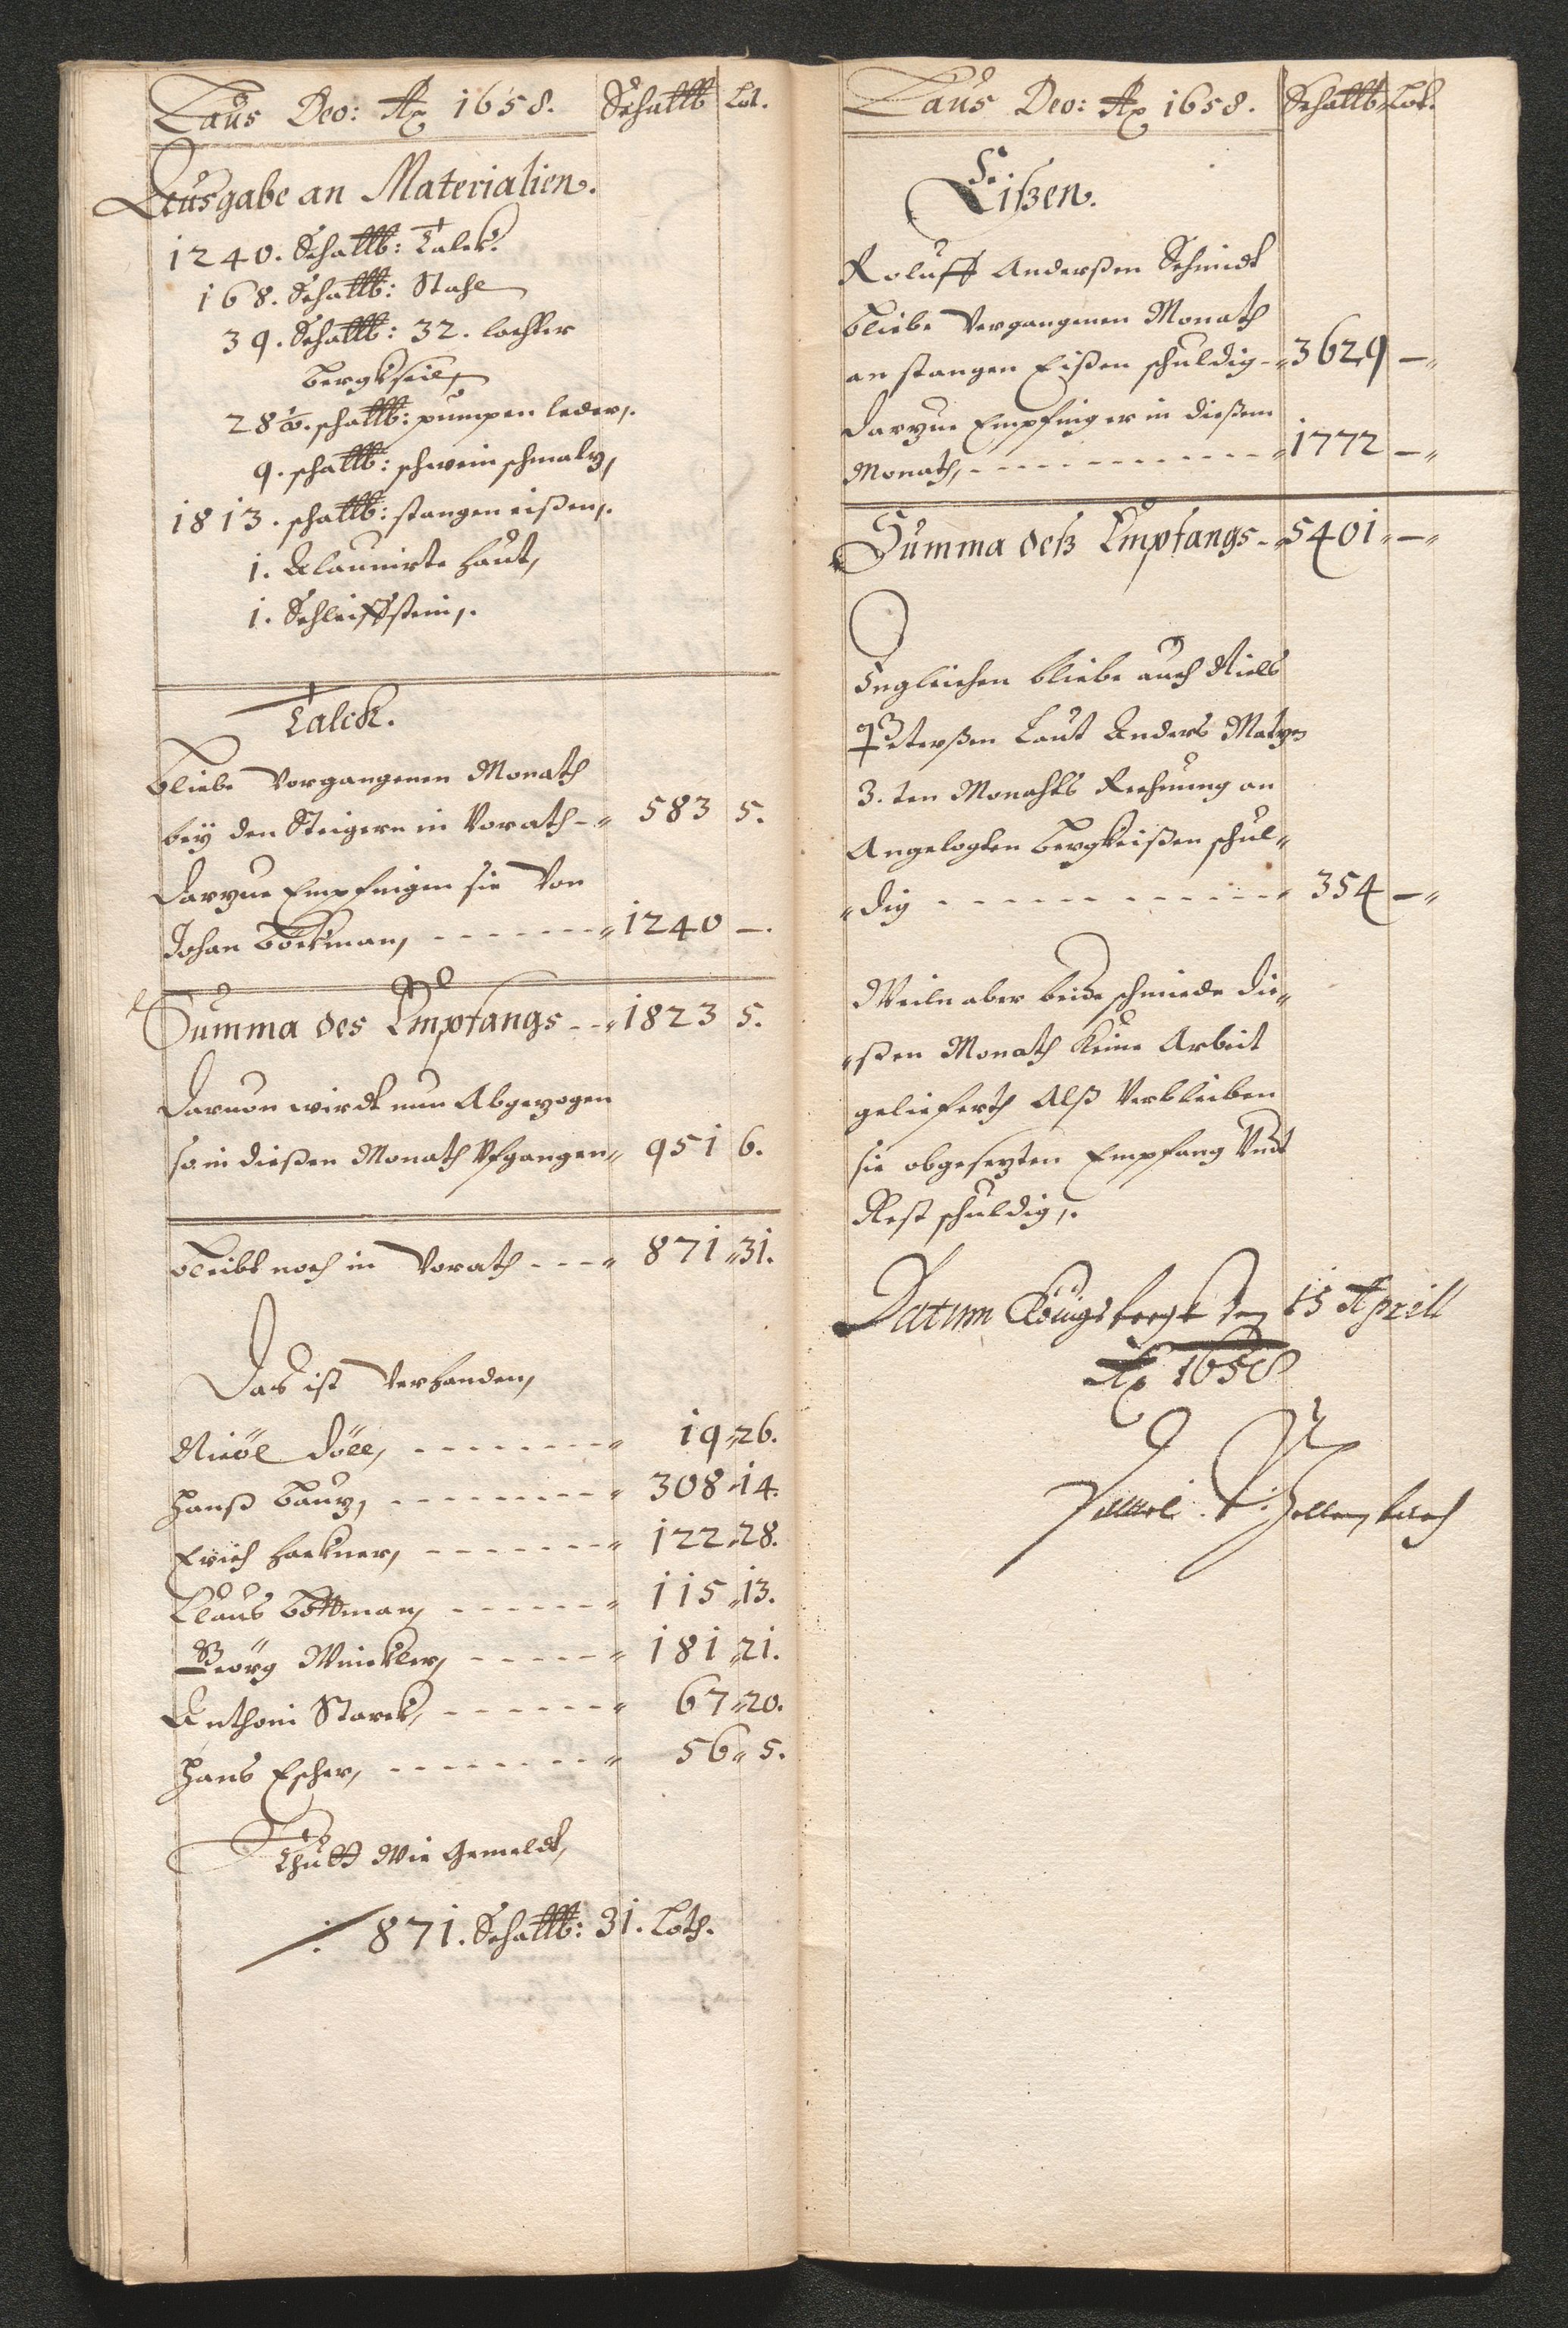 Laus Deo: Ao 1658. Schallb Lot.
Ausgabe an Materialien.
1240. Schallb: Talck.
168. Schallb: Stahl
39. Schallb: 32. lachter
bergkseil,
28 1/2. schallb: pumpen leder,.
9. schallb: schwein schmaltz,
1813. schallb: stangen eißen,.
1. Alaunirte haut,
1. Schleiffstein,.
Talck.
bliebe Vergangenen Monath
beÿ den Steigern in Vorath - 583 5.
Darzue Empfingen sie Von
Johan Böckman, - 1240 -.
Summa des Empfangs - 1823 5.
Daruon wirdt nun Abgezogen
so in dießen Monath Vfgangen 951 6.
bleibt noch in Vorath - 871 31.
Das ist Verhanden,
Nicöl Döll, - 19 26.
Hanß bautz, - 308 14.
Erich hackner, - 122 28.
Claus bottman, - 115 13.
Georg Winckler, - 181 21.
Anthoni Starck, - 67 20.
Hans Escher, - 56 5.
Thutt Wie Gemeldt,
871. Schallb: 31. Loth.
Laus Deo: Ao 1658. Schallb Lot.
Eißen.
Roluff Anderßen Schmidt
bliebe Vergangenen Monath
an stangen Eißen schuldig - 3629 -
Darzue Empfing er in dießem
Monath, - 1772 -
Summa deß Empfangs - 5401 -
Ingleichen bliebe auch Niels
Peterßen Laut Anders Matzen
3. ten Monahts Rechnung an
Angelegten bergkeißen schul"
"dig - 354 -
Weiln aber beide schmiede die"
"ßen Monath Keine Arbeit
gelieferth Alß Verbleiben
sie obgesetzten Empfang Undt
Rest schuldig,.
Datum Königsbergk den 15 Aprill
Ao 1658